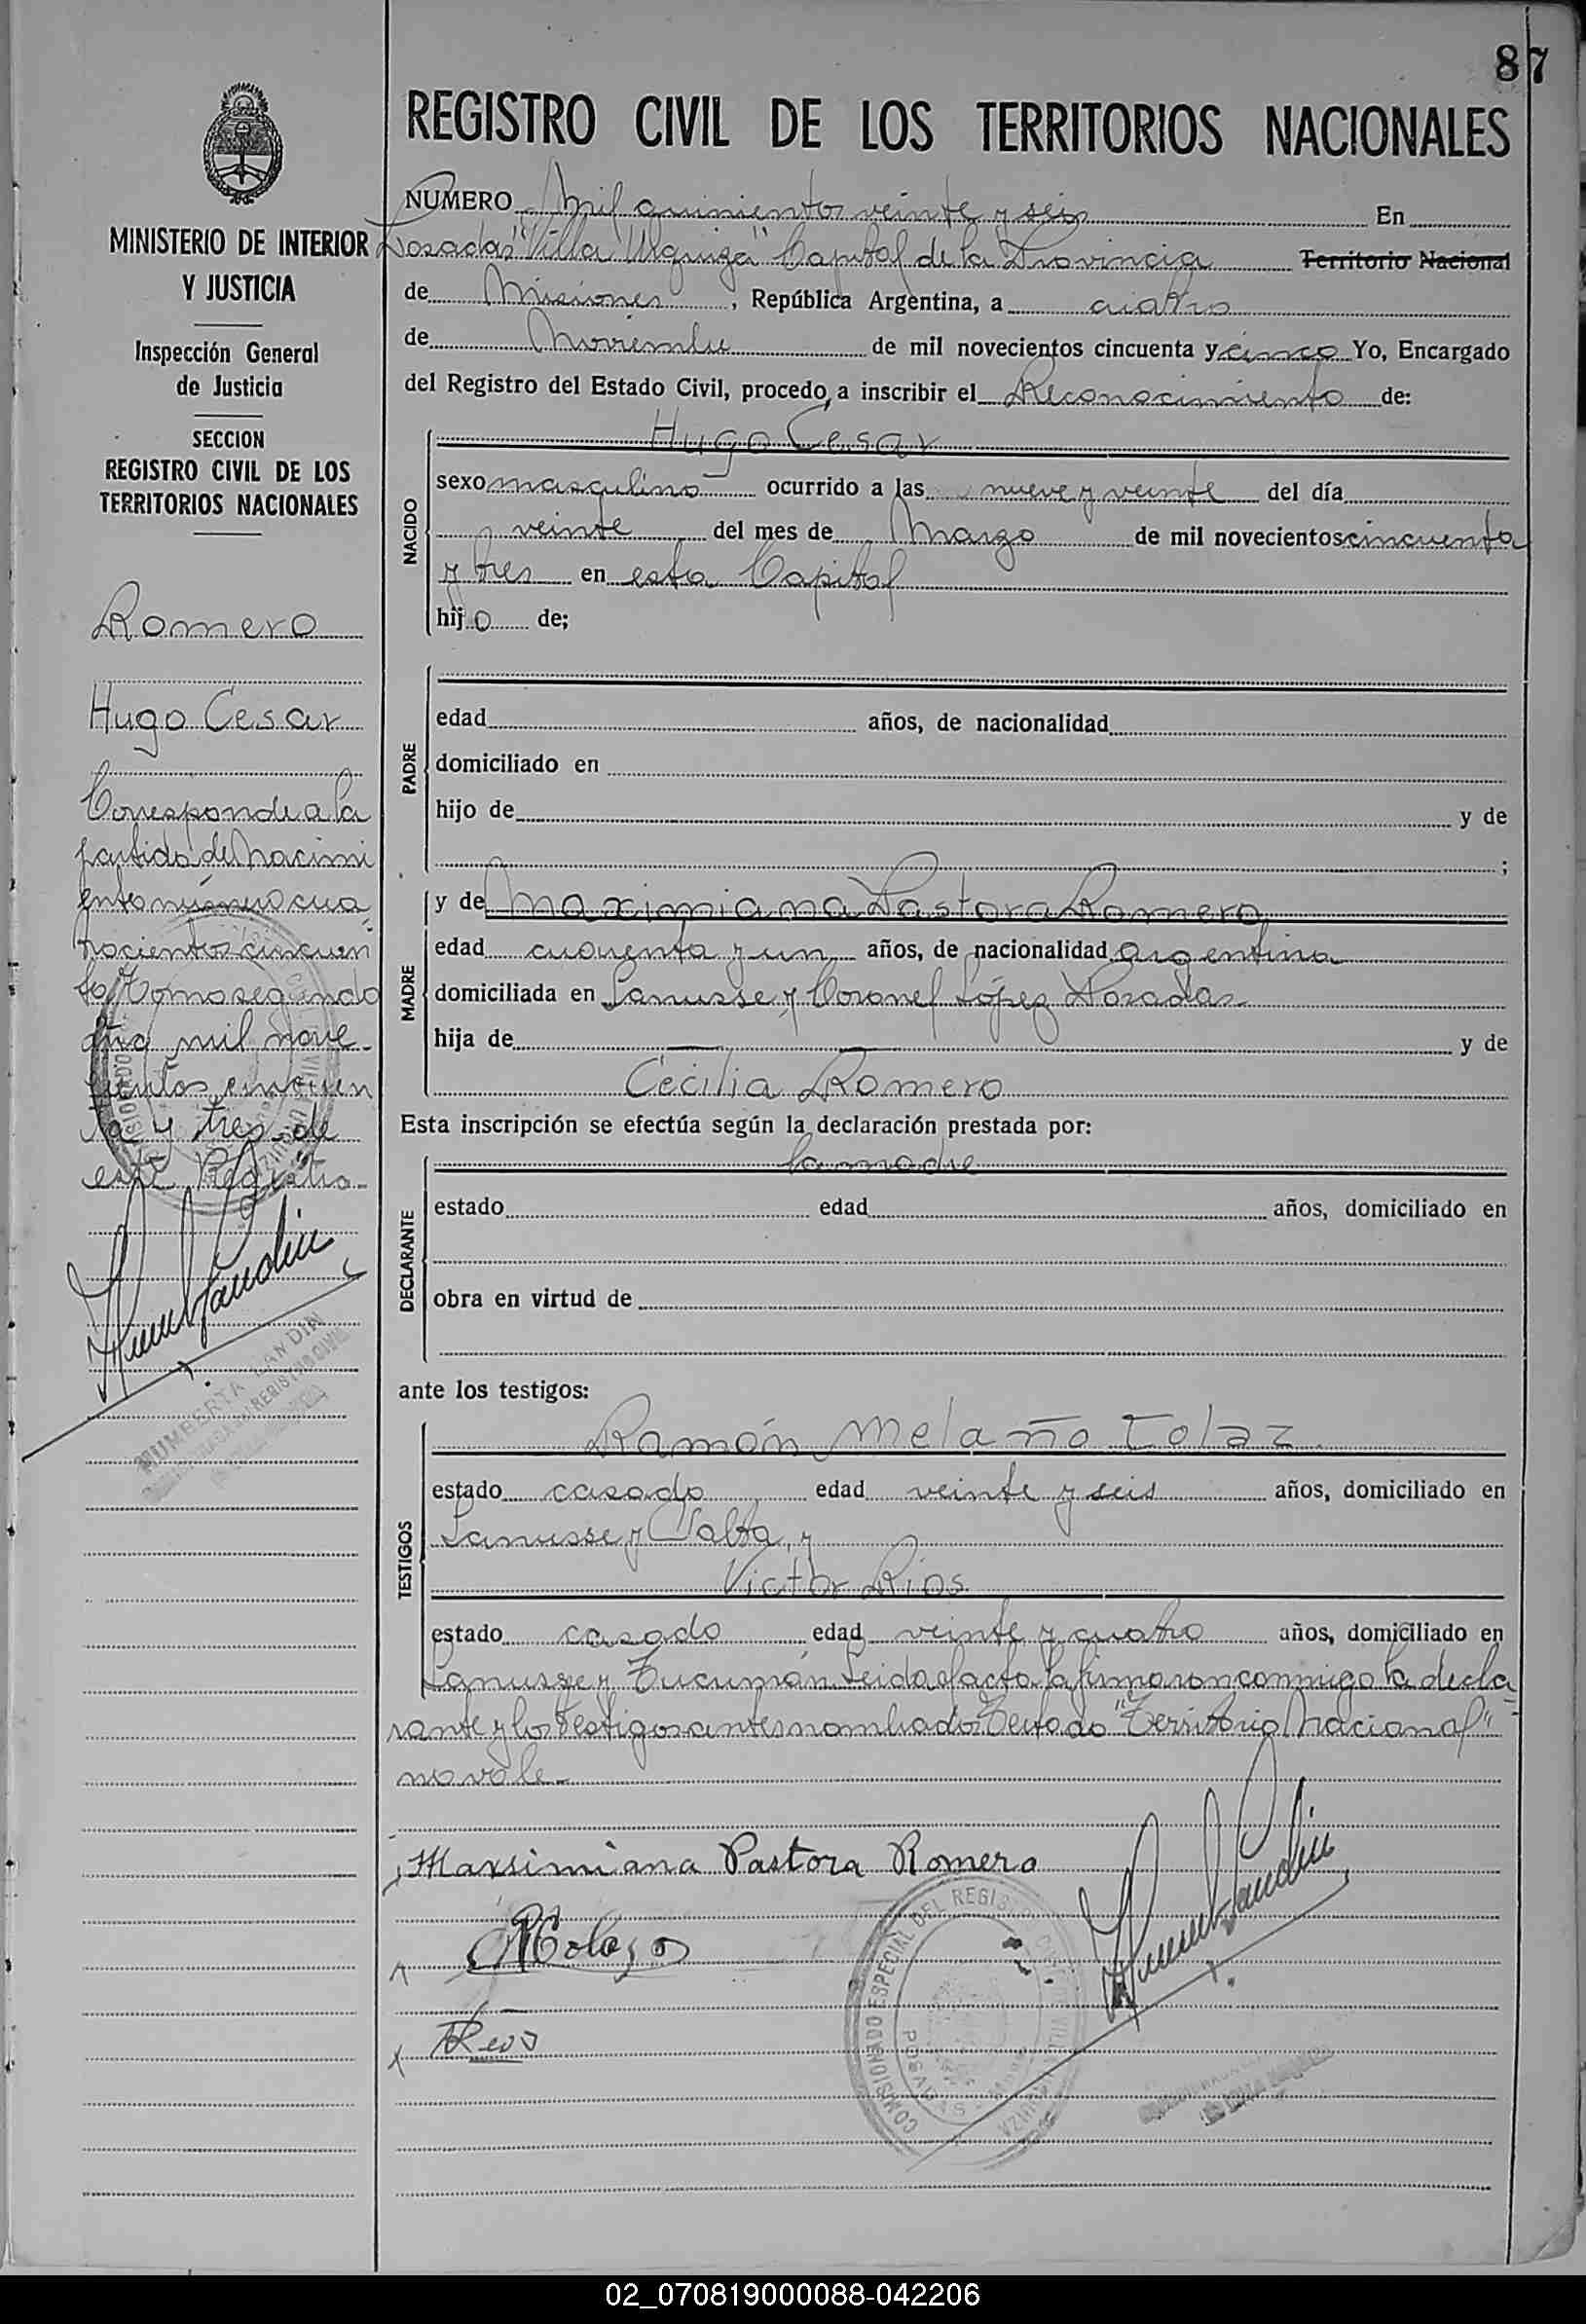 87
REGISTRO CIVIL DE LOS TERRITORIOS NACIONALES
MINISTERIO DE INTERIOR
Y JUSTICIA
Inspección General
de Justicia
SECCION
REGISTRO CIVIL DE LOS
TERRITORIOS NACIONALES
Romero
Hugo Cesar
Corresponde a la
partida de Nacimi
ento número cua
trocientos cincuen
ta, Tomo segundo
año mil nove-
cientos cincuen
ta y tres de
este Registro.-
HUMBERTA LANDIN
NUMERO Mil quinientos veinte y seis En
Posadas "Villa Urquiza" Capital de la Provincia Territorio Nacional
de Misiones, República Argentina, a cuatro
de Noviembre de mil novecientos cincuenta y cinco Yo, Encargado
del Registro del Estado Civil, procedo, a inscribir el Reconocimiento de:
NACIDO
Hugo Cesar
sexo masculino ocurrido a las nueve y veinte del día
veinte del mes de Marzo de mil novecientos cincuenta
y tres en esta Capital
hijo de;
PADRE
edad años, de nacionalidad
domiciliado en
hijo de y de
;
MADRE
y de Maximiana Pastora Romero
edad cuarenta y un años, de nacionalidad argentina
domiciliada en Lanusse y Coronel López Posadas
hija de y de
Cecilia Romero
Esta inscripción se efectúa según la declaración prestada por:
DECLARANTE
la madre
estado edad años, domiciliado en
obra en virtud de
ante los testigos:
TESTIGOS
Ramón Melaño
estado casado edad veinte y seis años, domiciliado en
Lanusse y Salta, y
Victor Rios
estado casado edad veinte y cuatro años, domiciliado en
Lanusse y Tucumán. Leida el acta la firmaron conmigo la decla
rante y los testigos antes nombrados Testado "Territorio Nacional"
no vale.-
Marsimiana Pastora Romero
COMISIONADO ESPECIAL DEL REGISTRO CIVIL VILLA URQUIZA
POSADAS
02_070819000088-042206